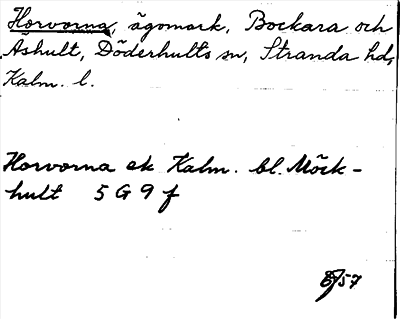 Horvorna, ägomark, Bockara och
Åshult, Döderhults sn, Stranda hd,
Kalm. l.
Horvorna ek Kalm. bl. Möck-
hult 5 G 9 f
57